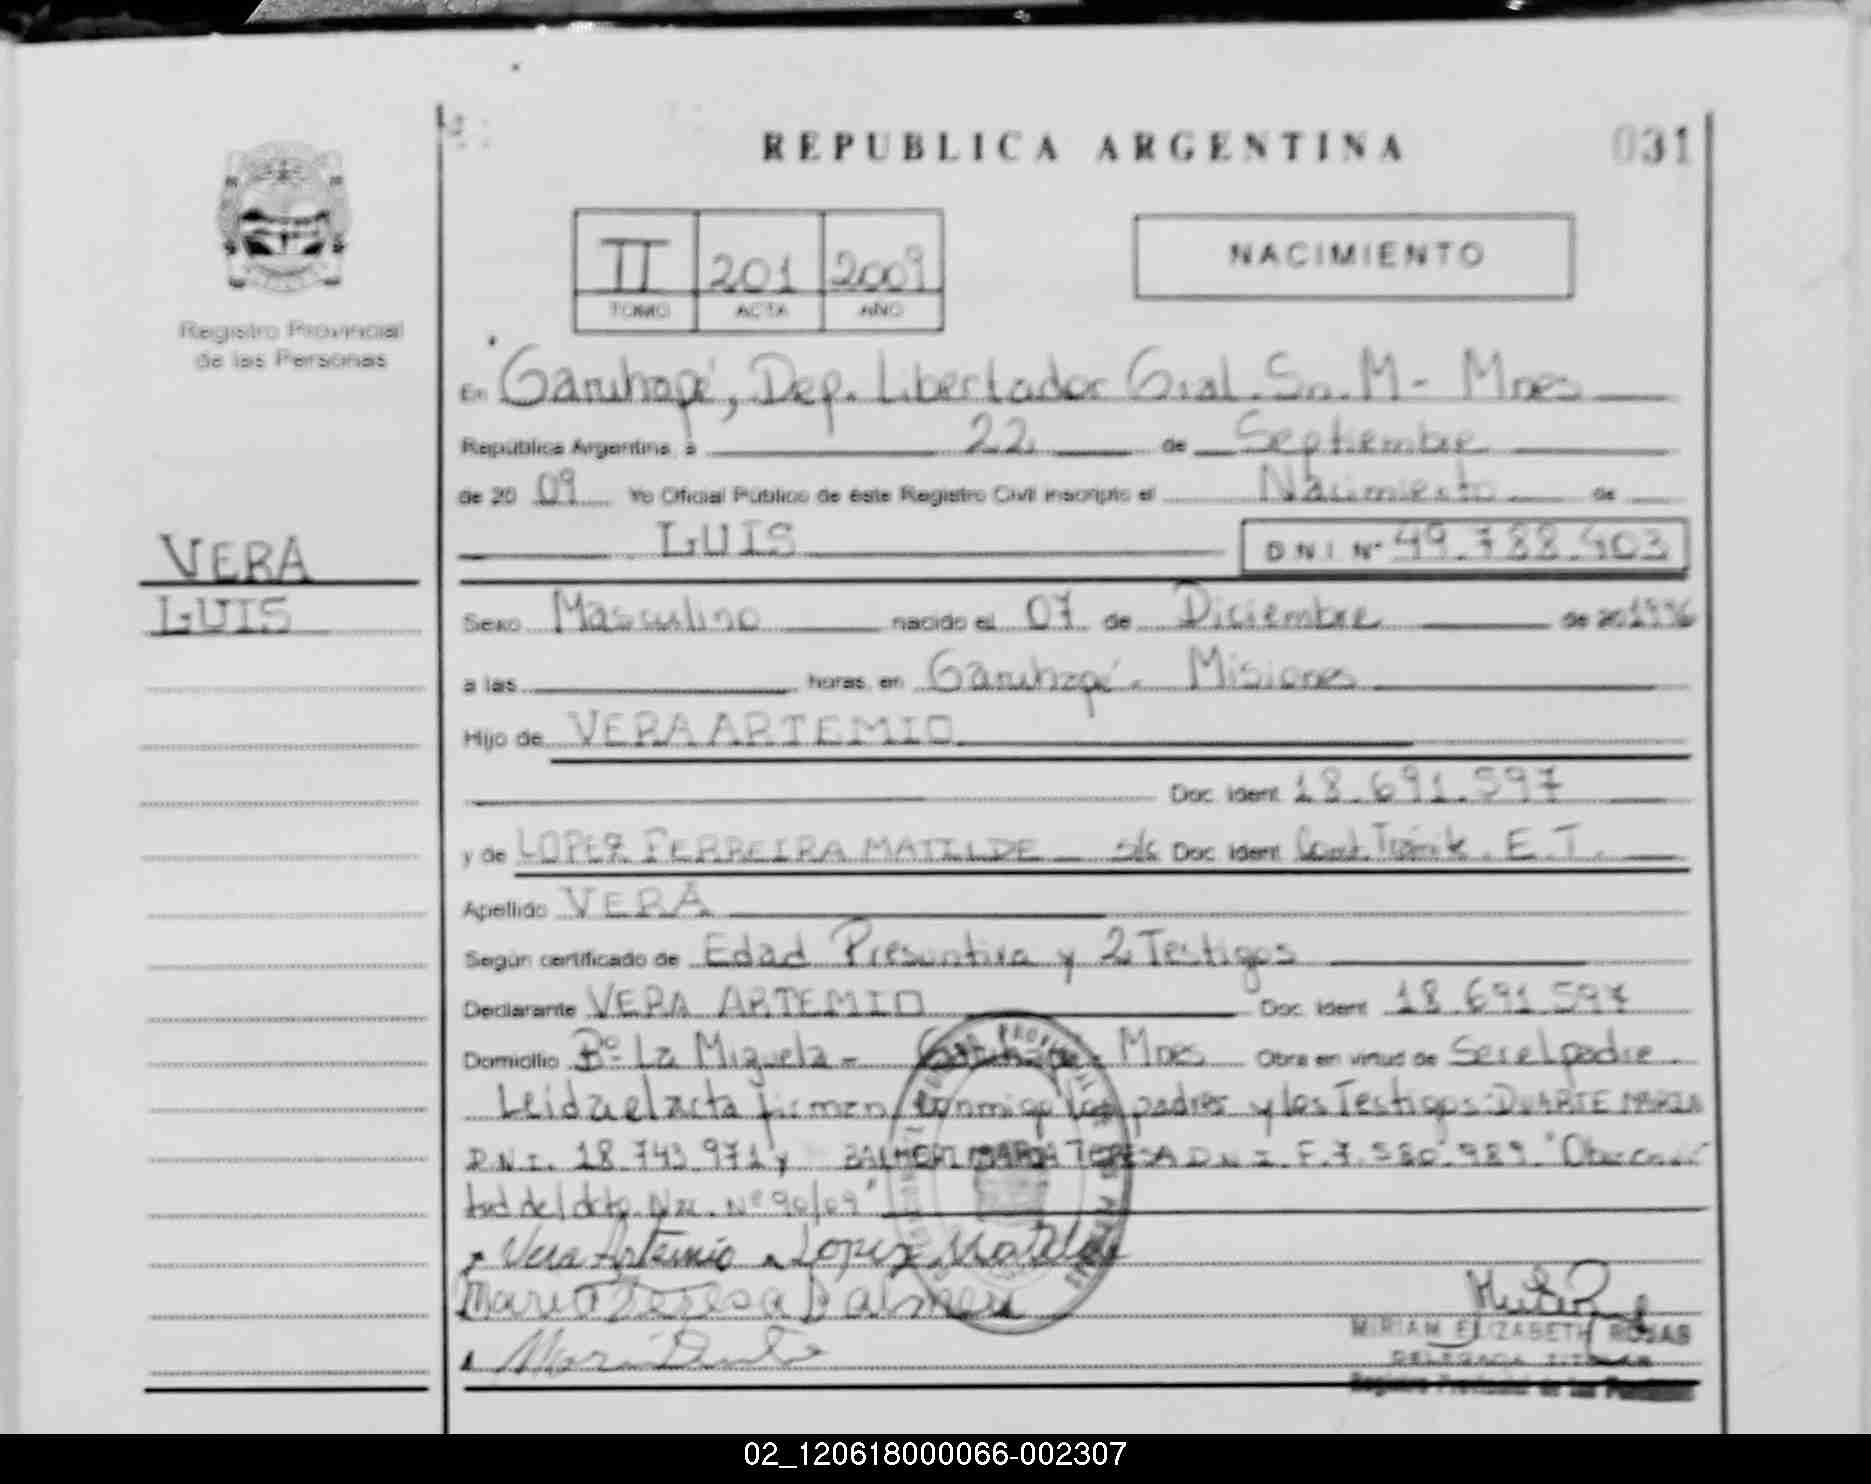 REPUBLICA ARGENTINA
031
II 201 2009
TOMO ACTA AÑO
NACIMIENTO
Registro Provincial
de las Personas
En Garuhapé, Dep. Libertador Gral. Sn. M - Mnes
República Argentina, a 22 de Septiembre
de 20 09 Yo Oficial Público de éste Registro Civil inscripto el Nacimiento de
LUIS
DNI Nº 49.788.403
VERA
LUIS
Sexo Masculino nacido el 07 de Diciembre de 20 1996
a las horas, en Garuhapé - Misiones
Hijo de VERA ARTEMIO
Doc. Ident. 18.691.597
y de LOPEZ FERREIRA MATILDE s/c Doc. Ident. Const. Trámite. E.T.
Apellido VERA
Según certificado de Edad Presuntiva y 2 Testigos
Declarante VERA ARTEMIO Doc. Ident. 18.691.597
Domicilio Bº La Miguela - Garuhapé - Mnes Obra en virtud de Ser el padre
Leida el acta firman conmigo los padres y los Testigos: DUARTE MARIA
D.N.I. 18.743.971 y MARIA TERESA D.N.I. F.7.580.989
Nac. Nº 90/09"
Vera Artemio Lopez Matilde
Maria Teresa
MIRIAM ELIZABETH ROJAS
DELEGADA TITULAR
Registro Provincial de las Personas
02_120618000066-002307